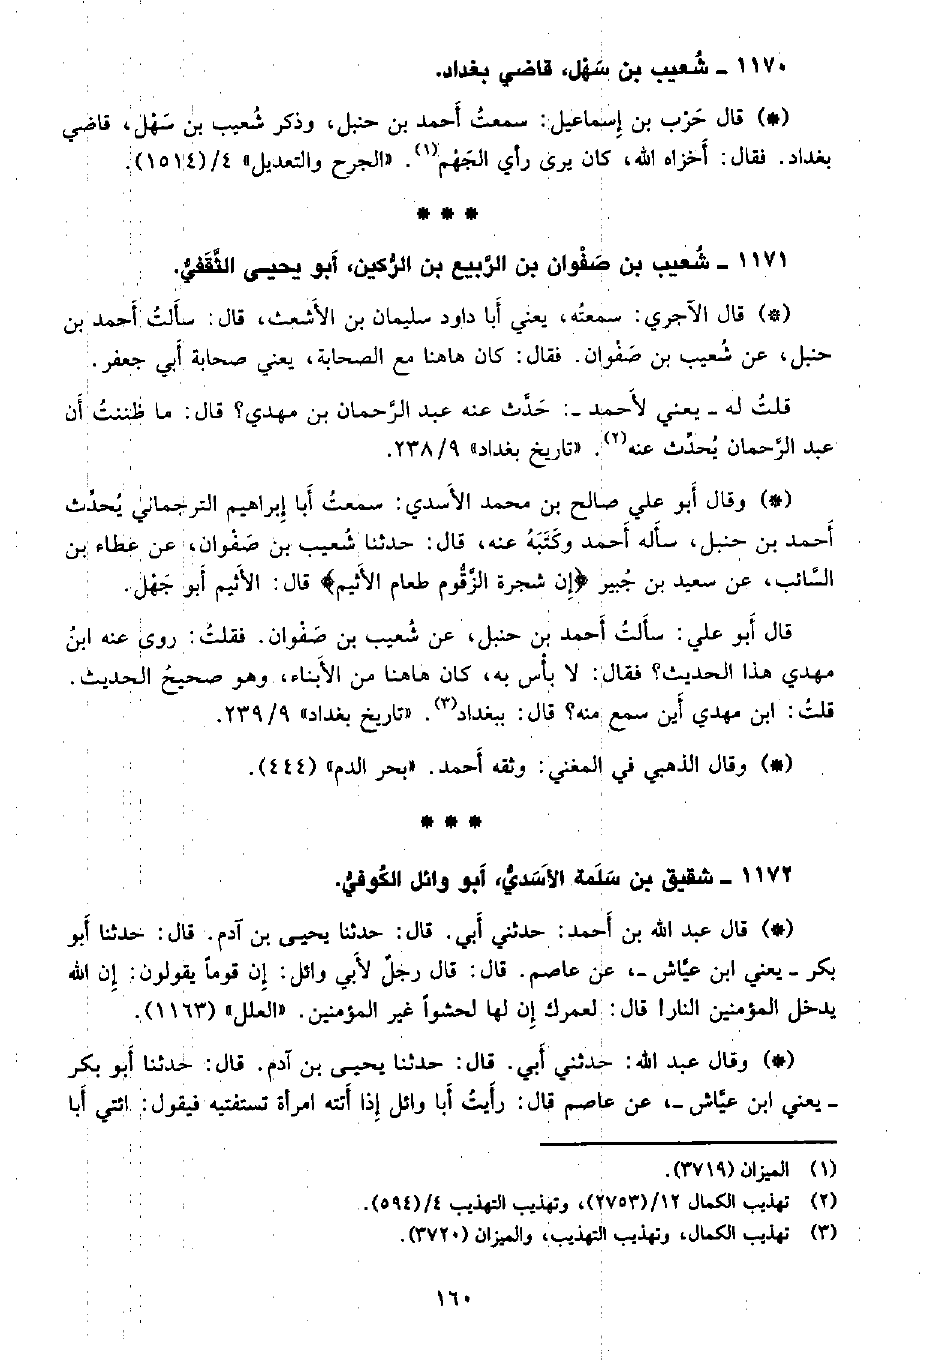 ١١٧٠ ـ شُعيب بن سَهْل، قاضي بغداد.
(*) قال حَرْب بن إِسماعيل: سمعتُ أَحمد بن حنبل، وذكر شُعيب بن سَهْل، قاضي
بغداد. فقال: أَخزاه الله، كان يرى رأي الجَهْم(١). «الجرح والتعديل» ٤/(١٥١٤).
* * *
١١٧١ ـ شُعيب بن صَفْوان بن الرَّبيع بن الرُّكين، أَبو يحيى الثَّقَفيُّ.
(*) قال الآجري: سمعتُه، يعني أَبا داود سليمان بن الأَشعث، قال: سأَلتُ أَحمد بن
حنبل، عن شُعيب بن صَفْوان. فقال: كان هاهنا مع الصحابة، يعني صحابة أَبي جعفر.
قلتُ له ـ يعني لأَحمد ـ: حَدَّث عنه عبد الرَّحمان بن مهدي؟ قال: ما ظننتُ أَن
عبد الرَّحمان يُحدِّث عنه(٢). «تاريخ بغداد» ٢٣٨/٩.
(*) وقال أَبو علي صالح بن محمد الأَسدي: سمعتُ أَبا إِبراهيم الترجماني يُحدِّث
أَحمد بن حنبل، سأَله أَحمد وكَتَبَهُ عنه، قال: حدثنا شُعيب بن صَفْوان، عن عطاء بن
السَّائب، عن سعيد بن جُبير ﴿إِن شجرة الزَّقُوم طعام الأَثيم﴾ قال: الأَثيم أَبو جَهْل.
قال أَبو علي: سأَلتُ أَحمد بن حنبل، عن شُعيب بن صَفْوان. فقلتُ: روى عنه ابنُ
مهدي هذا الحديث؟ فقال: لا بأْس به، كان هاهنا من الأَبناء، وهو صحيحُ الحديث.
قلتُ: ابن مهدي أَين سمع منه؟ قال: ببغداد(٣). «تاريخ بغداد» ٢٣٩/٩.
(*) وقال الذهبي في المغني: وثقه أَحمد. «بحر الدم» (٤٤٤).
* * *
١١٧٢ ـ شقيق بن سَلَمة الأَسَديُّ، أَبو وائل الكُوفيُّ.
(*) قال عبد الله بن أَحمد: حدثني أَبي. قال: حدثنا يحيى بن آدم. قال: حدثنا أَبو
بكر ـ يعني ابن عيَّاش ـ، عن عاصم. قال: قال رجلٌ لأَبي وائل: إِن قوماً يقولون: إِن الله
يدخل المؤمنين النار! قال: لعمرك إِن لها لحشواً غير المؤمنين. «العلل» (١١٦٣).
(*) وقال عبد الله: حدثني أَبي. قال: حدثنا يحيى بن آدم. قال: حدثنا أَبو بكر
ـ يعني ابن عيَّاش ـ، عن عاصم قال: رأَيتُ أَبا وائل إِذا أَتته امرأَة تستفتيه فيقول: ائتي أَبا
(١) الميزان (٣٧١٩).
(٢) تهذيب الكمال ١٢/(٢٧٥٣)، وتهذيب التهذيب ٤/(٥٩٤).
(٣) تهذيب الكمال، وتهذيب التهذيب، والميزان (٣٧٢٠).
١٦٠